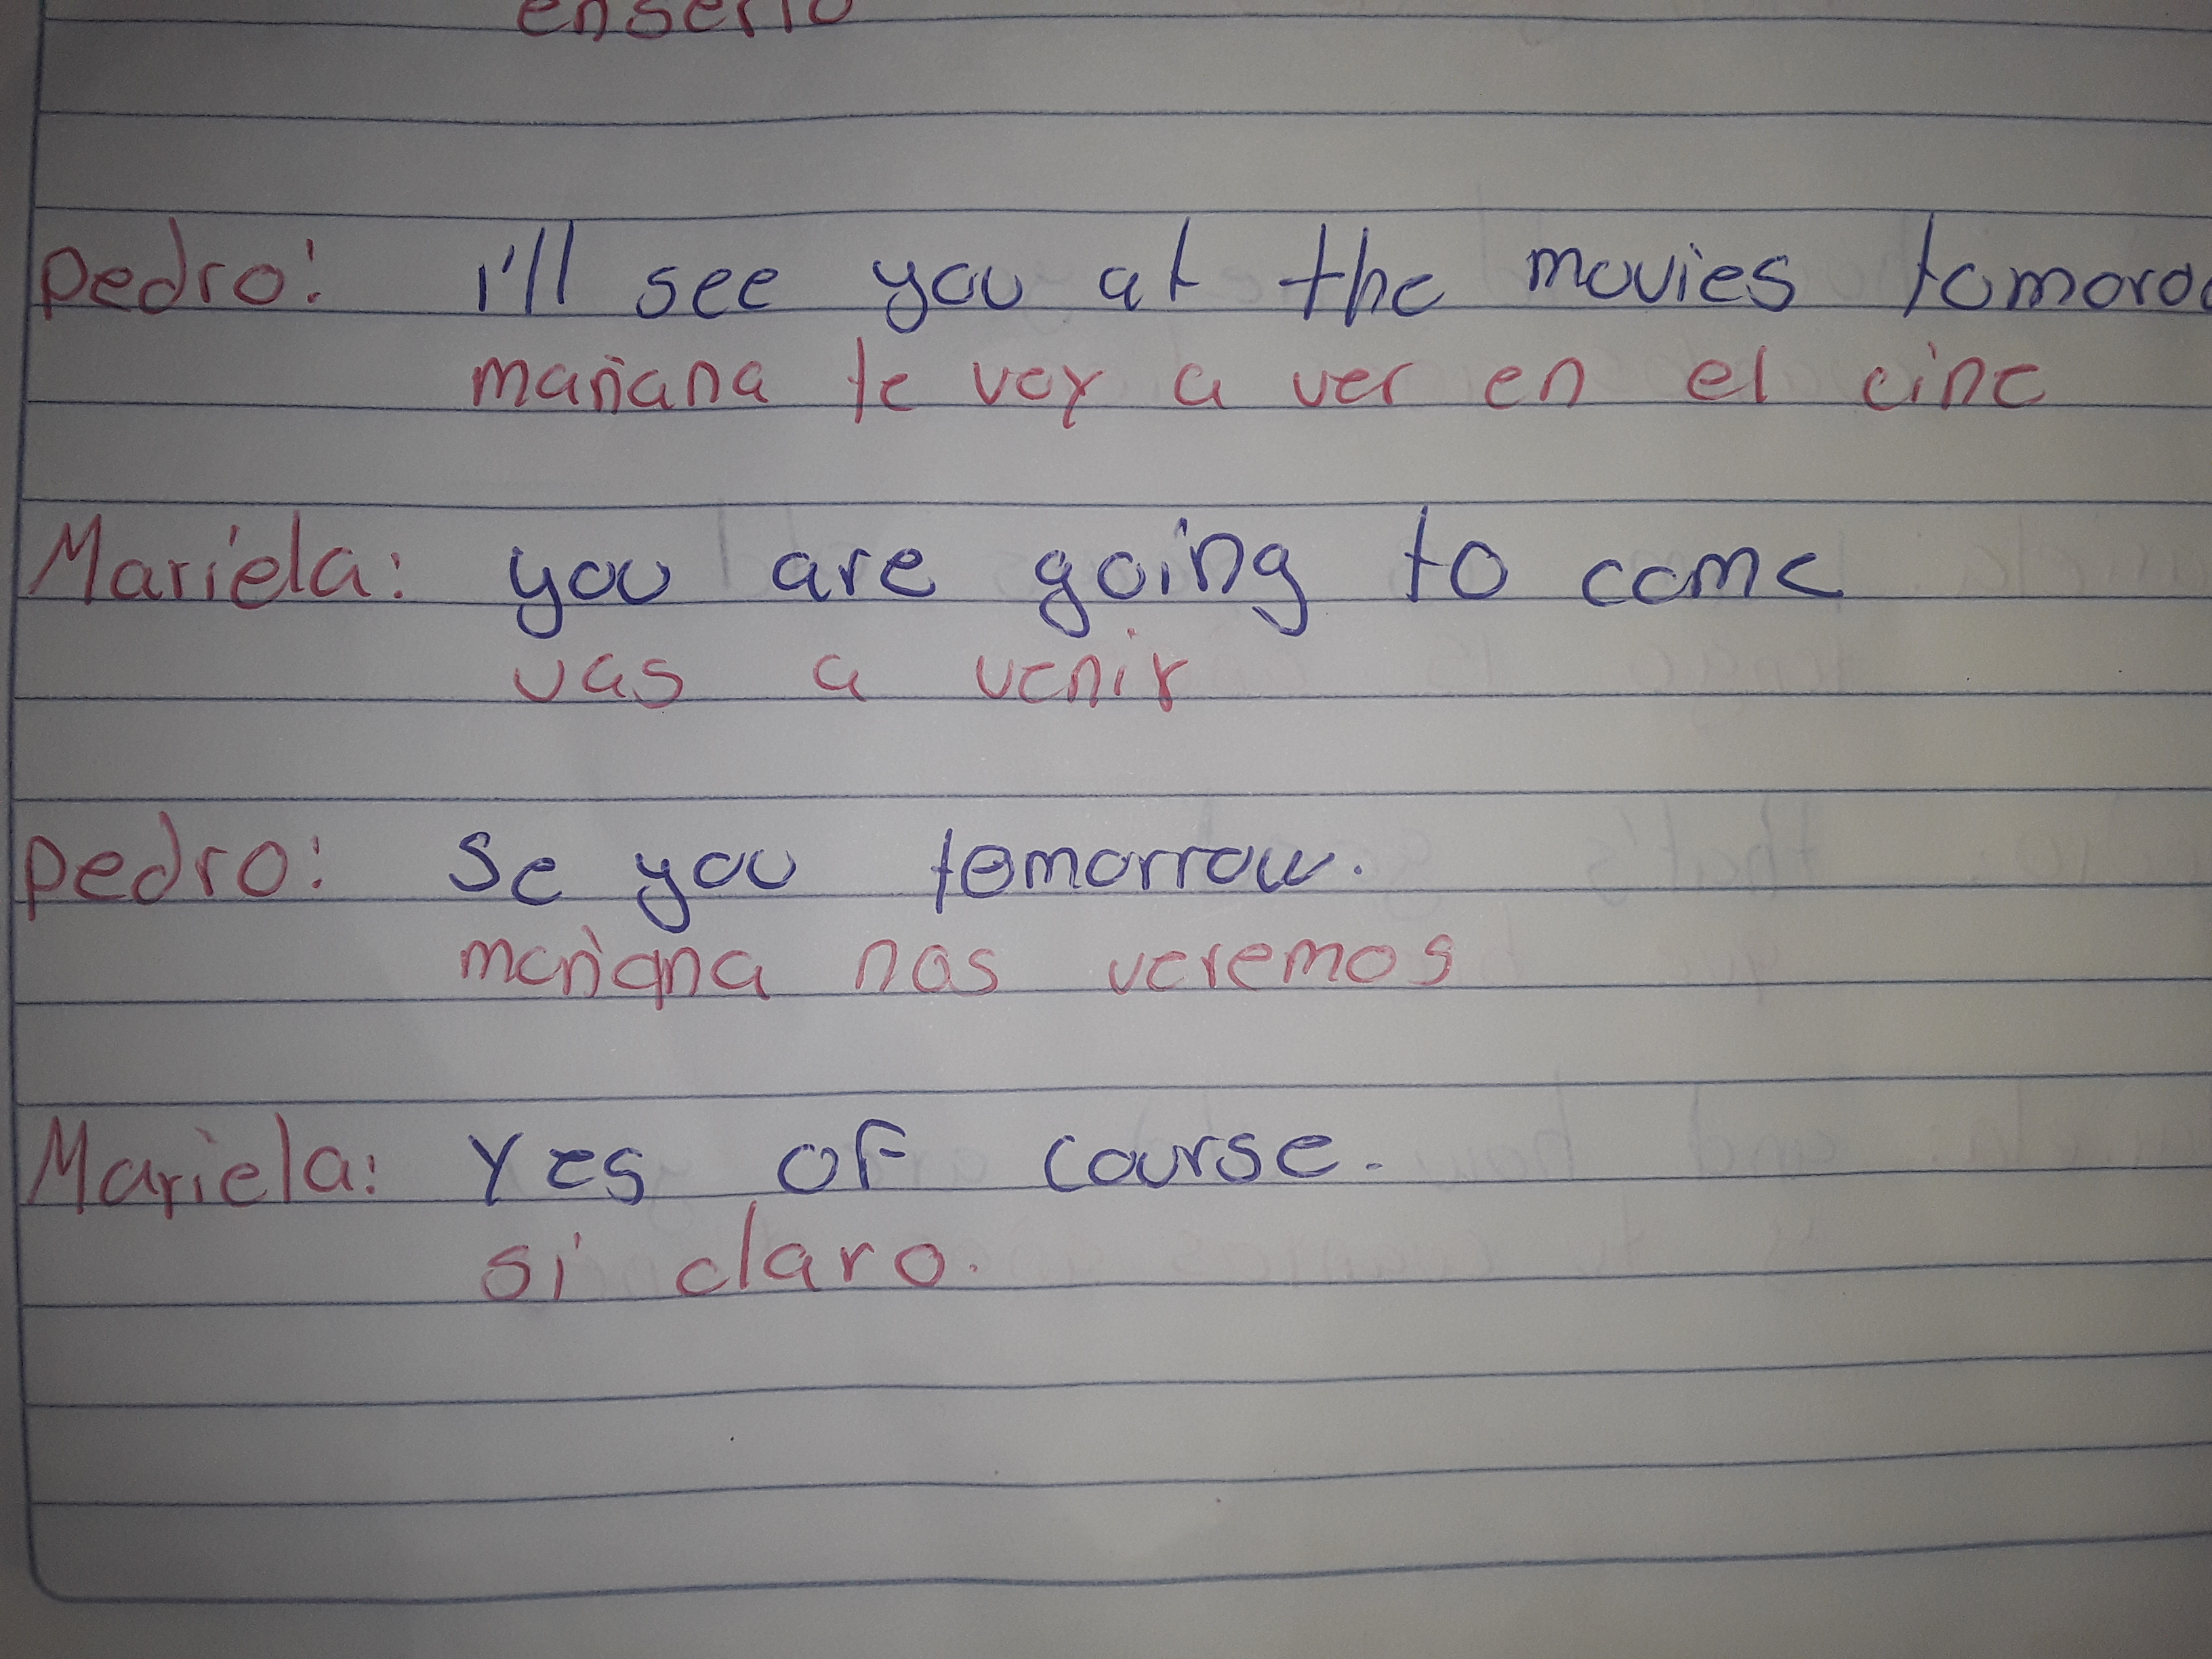 enserio
pedro: I'll see you at the movies
mañana te voy a ver en el cine
Mariela: you are going to come
vas a venir
pedro: Se you tomorrow.
mañana nos veremos
Mariela: Yes of course.
si claro.